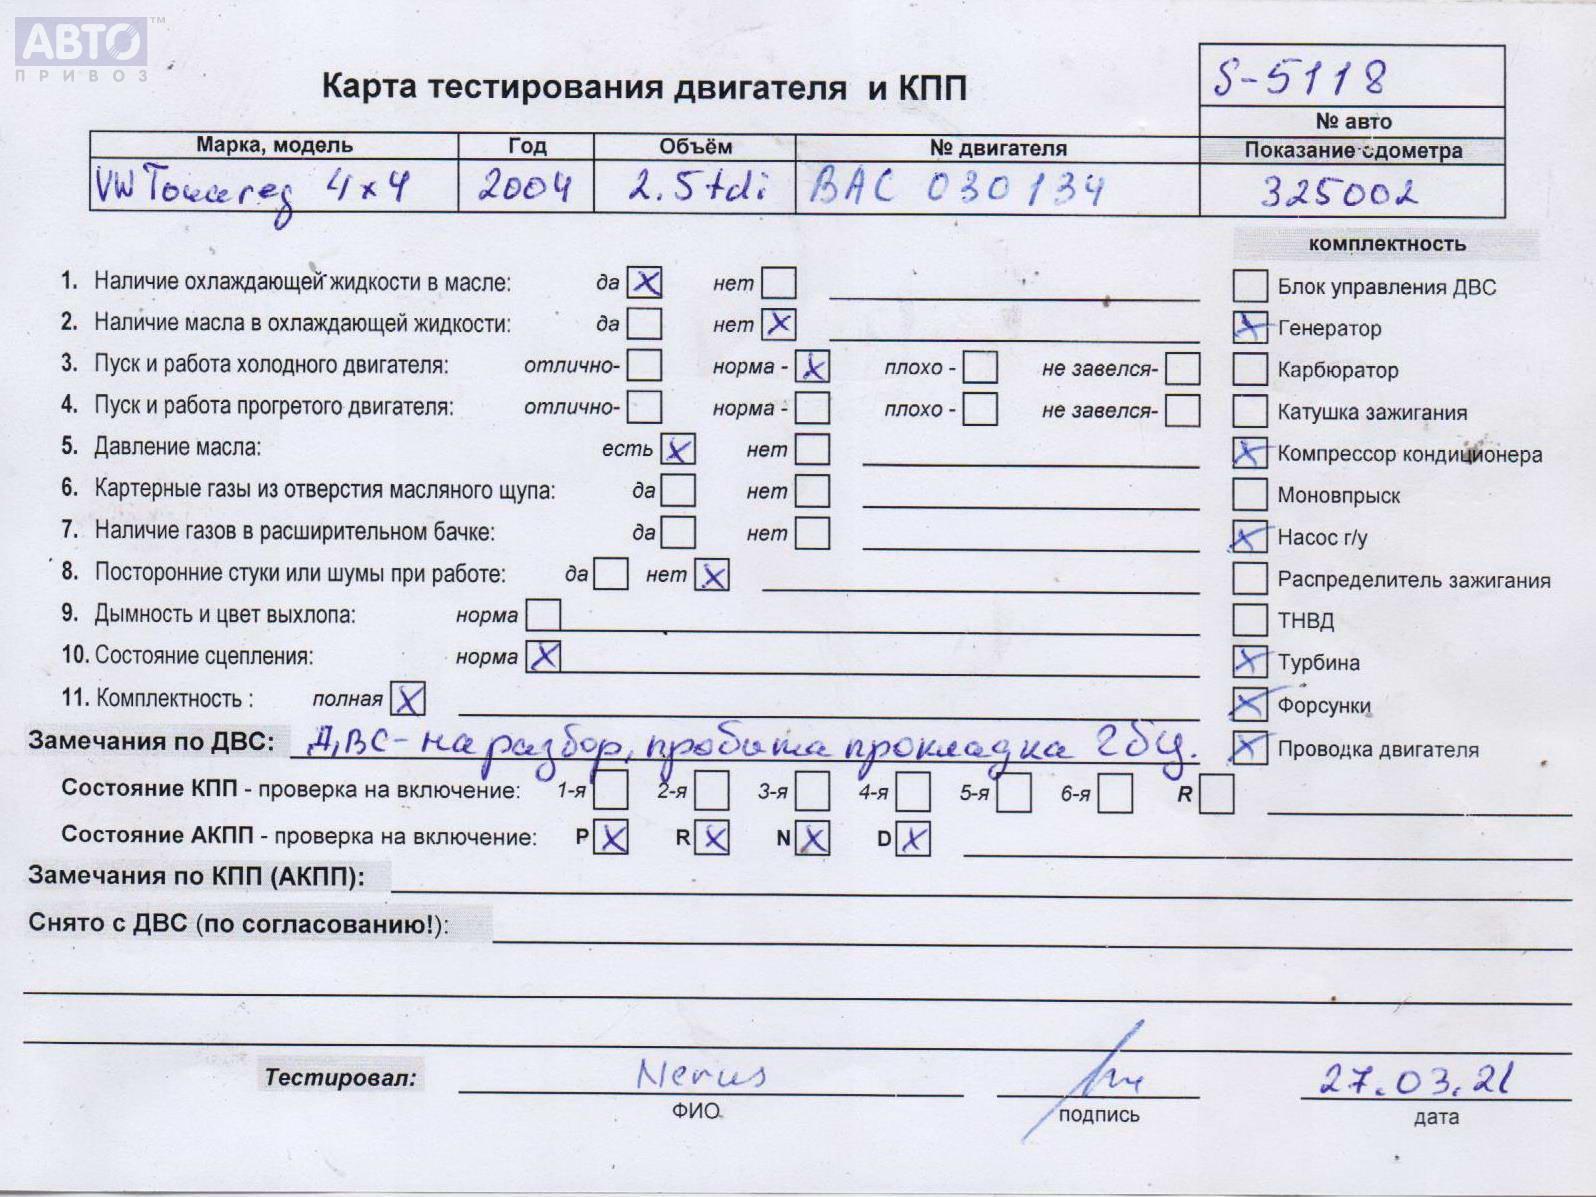 АВТО ТМ
ПРИВОЗ
S-5118
Карта тестирования двигателя и КПП
№ авто
Марка, модель Год Объём № двигателя Показание одометра
VW Touareg 4x4 2004 2.5 tdi BAC 030134 325002
комплектность
1. Наличие охлаждающей жидкости в масле: да X нет
Блок управления ДВС
2. Наличие масла в охлаждающей жидкости: да нет X
X Генератор
3. Пуск и работа холодного двигателя: отлично- норма - X плохо - не завелся-
Карбюратор
4. Пуск и работа прогретого двигателя: отлично- норма - плохо - не завелся-
Катушка зажигания
5. Давление масла: есть X нет
X Компрессор кондиционера
6. Картерные газы из отверстия масляного щупа: да нет
Моновпрыск
7. Наличие газов в расширительном бачке: да нет
X Насос г/у
8. Посторонние стуки или шумы при работе: да нет X
Распределитель зажигания
9. Дымность и цвет выхлопа: норма
ТНВД
10. Состояние сцепления: норма X
X Турбина
11. Комплектность : полная X
X Форсунки
Замечания по ДВС: ДВС - на разбор, пробита прокладка гбц.
X Проводка двигателя
Состояние КПП - проверка на включение: 1-я 2-я 3-я 4-я 5-я 6-я R
Состояние АКПП - проверка на включение: P X R X N X D X
Замечания по КПП (АКПП):
Снято с ДВС (по согласованию!):
Тестировал: 27.03.21
ФИО подпись дата